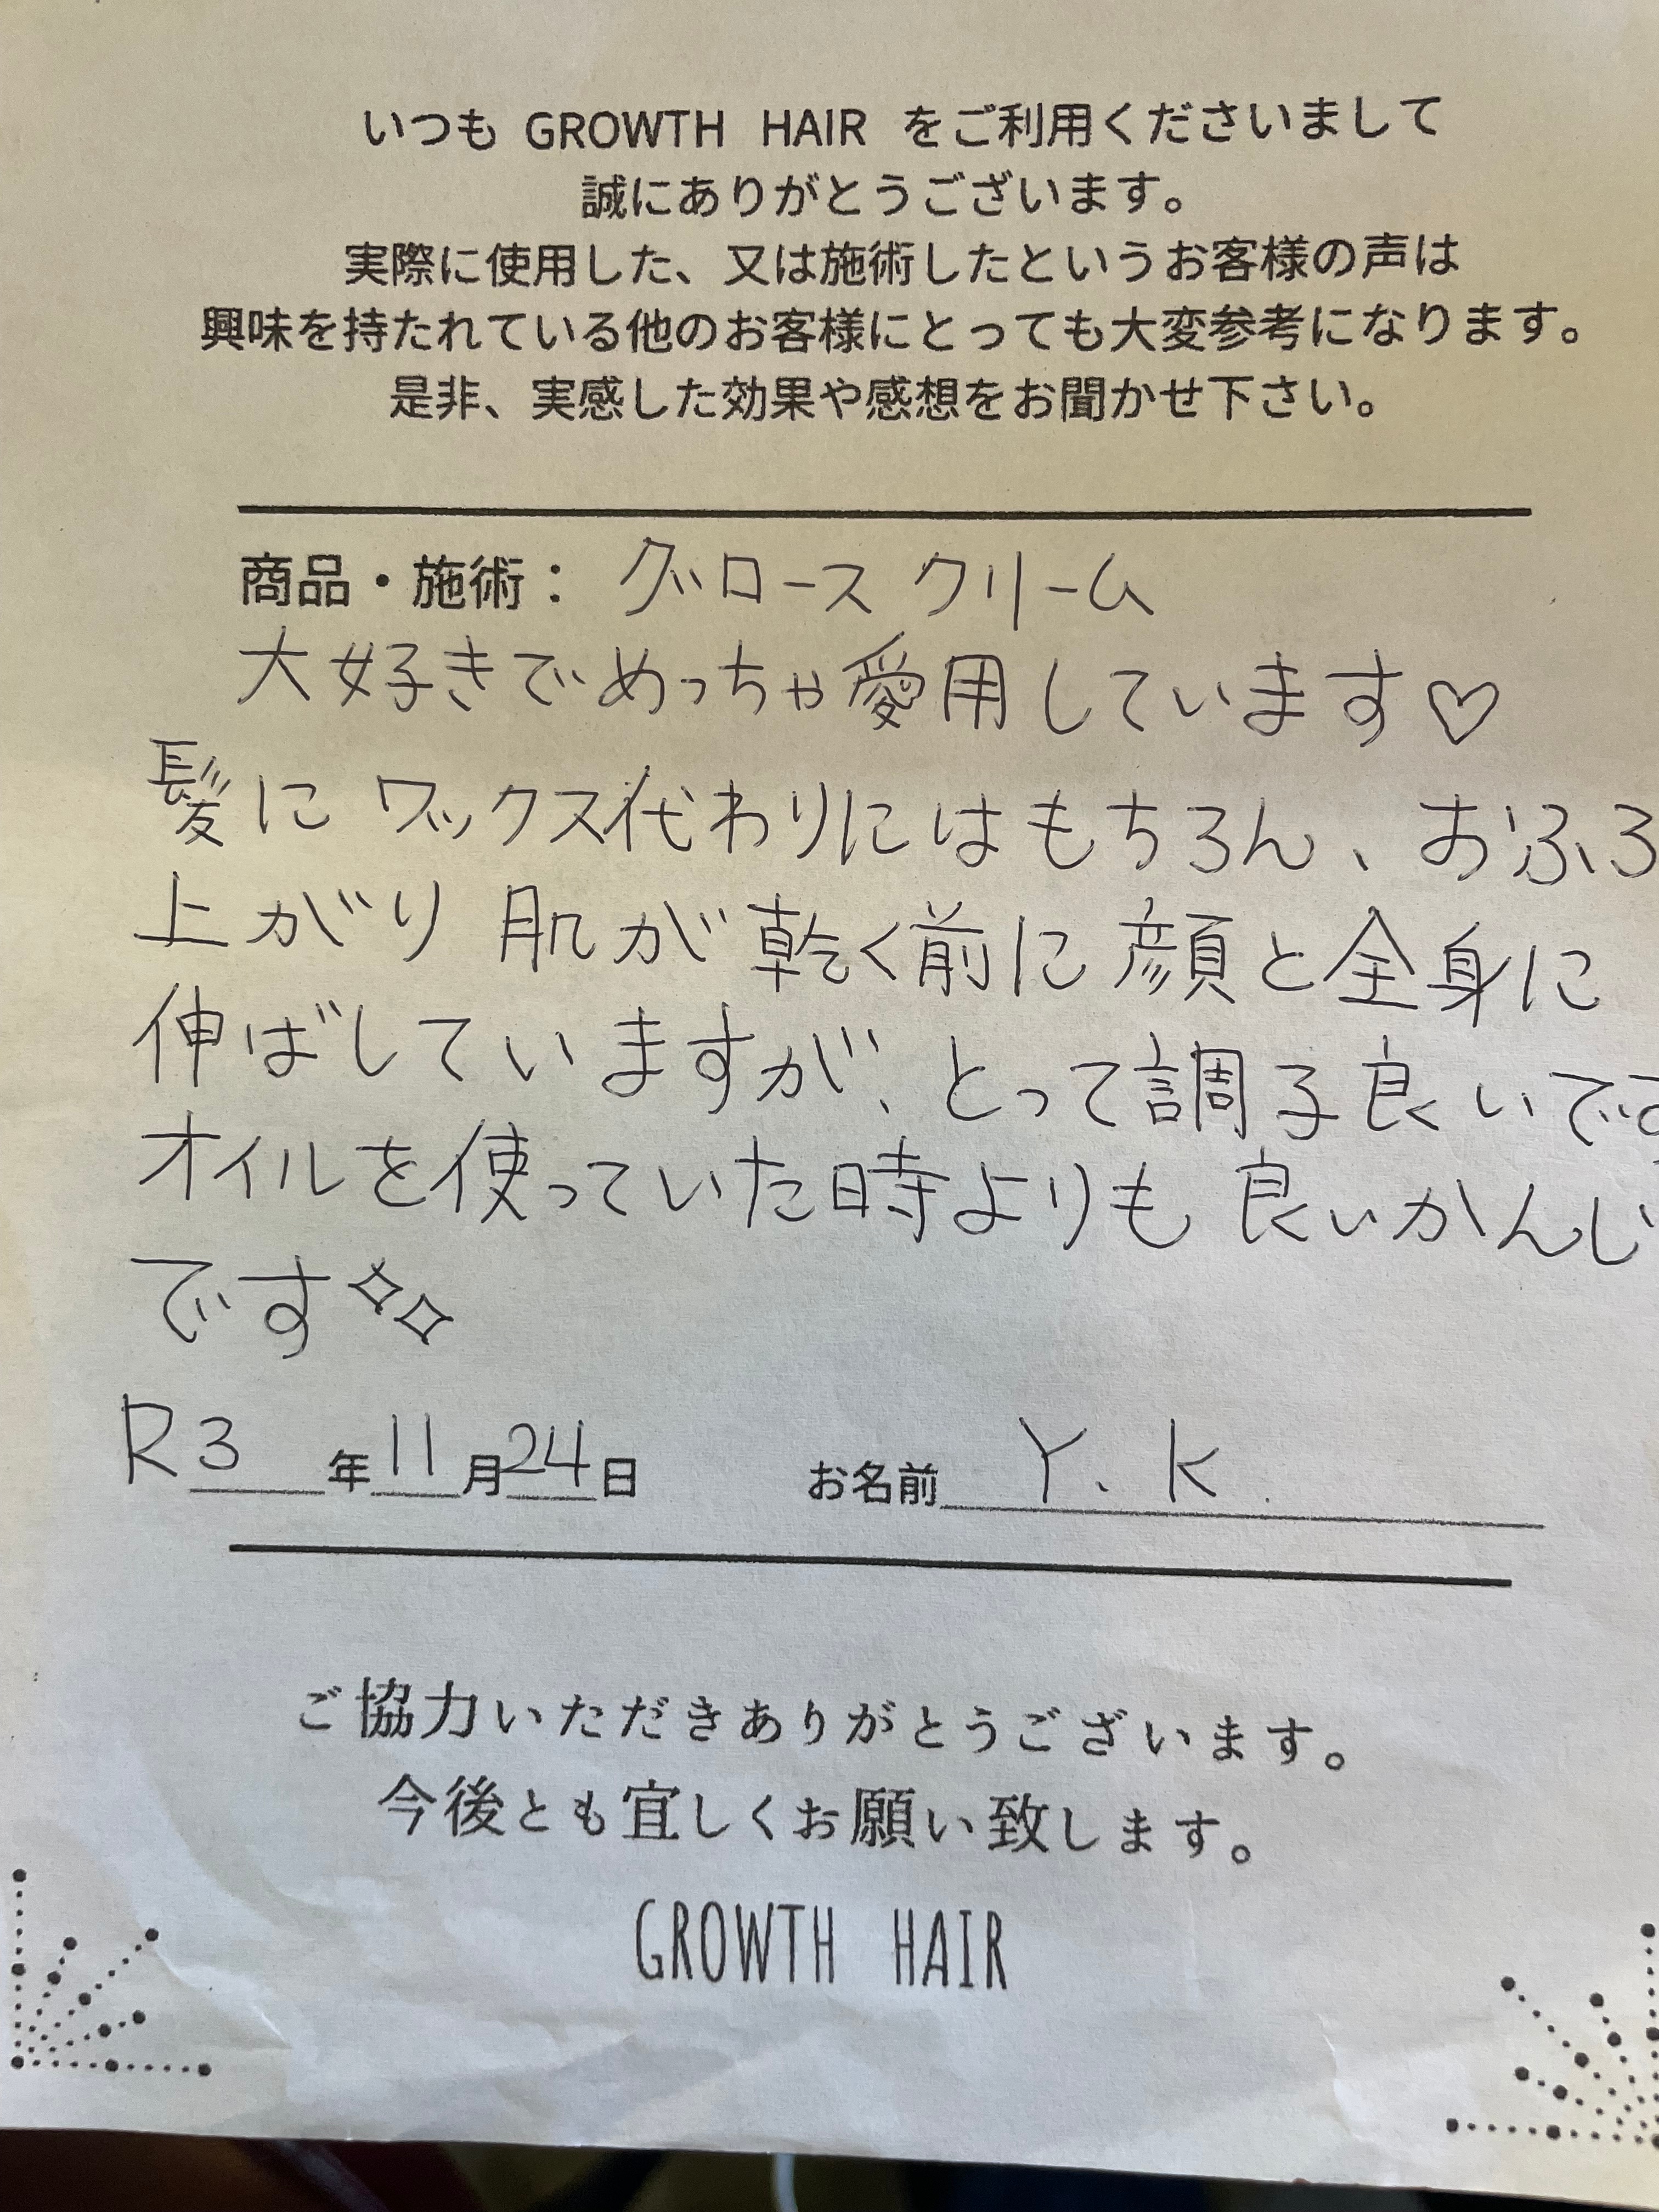 いつも GROWTH HAIR をご利用くださいまして
誠にありがとうございます。
実際に使用した、又は施術したというお客様の声は
興味を持たれている他のお客様にとっても大変参考になります。
是非、実感した効果や感想をお聞かせ下さい。
商品・施術： グロース クリーム
大好きでめっちゃ愛用しています♡
髪に ワックス代わりにはもちろん、おふろ
上がり 肌が乾く前に顔と全身に
伸ばしていますが、とって調子良いです
オイルを使っていた時よりも 良いかんじ
です✧✧
R3年11月24日 お名前 Y.K.
ご協力いただきありがとうございます。
今後とも宜しくお願い致します。
GROWTH HAIR